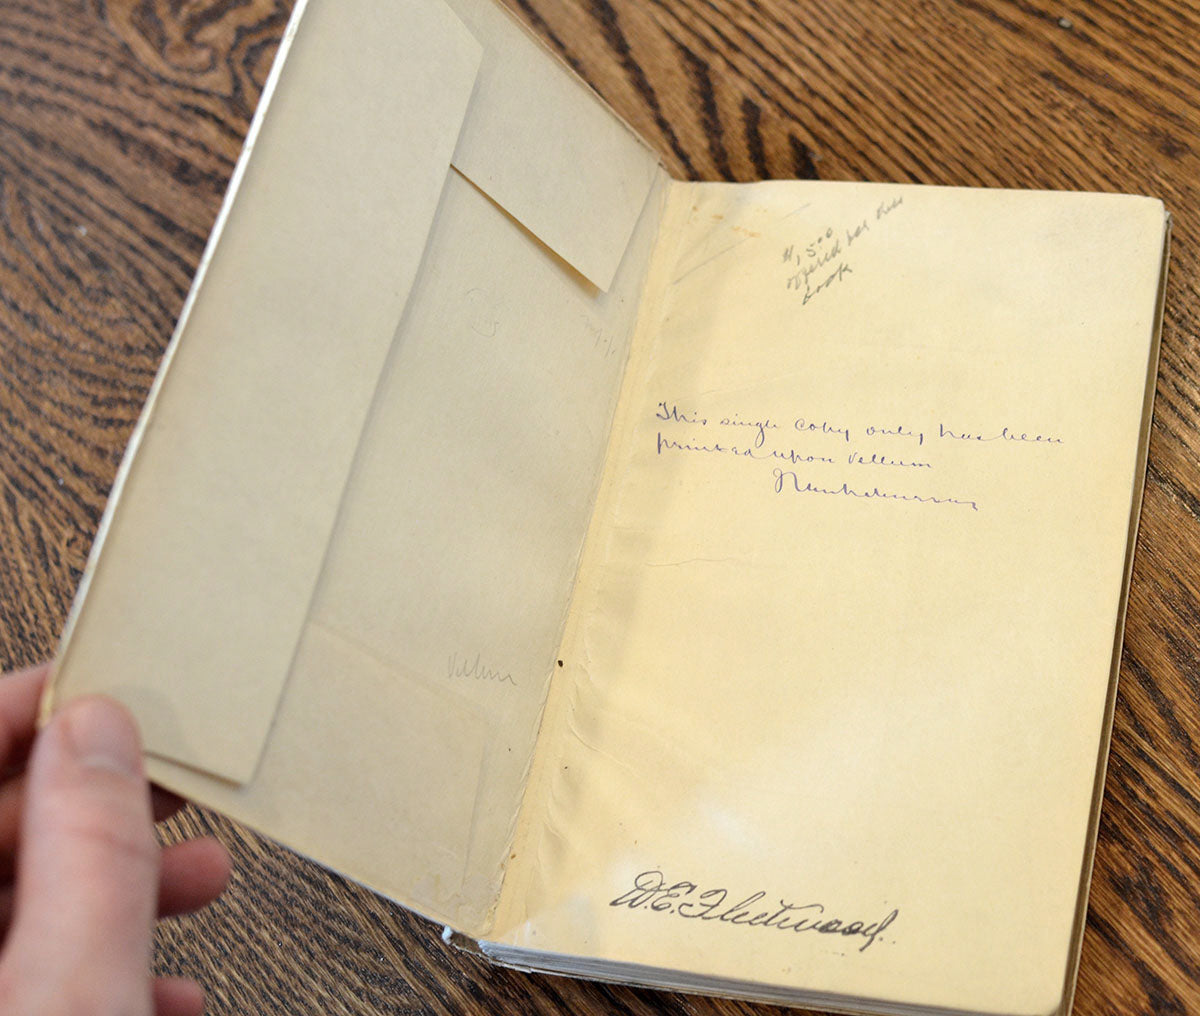 $1,500
offered for this
book
This single copy only has been
printed upon vellum
Vellum
D.E. Fleetwood.